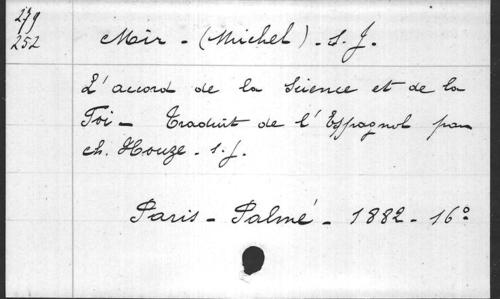 279
252
Mir - (Michel) - S. J.
L'accord de la Science et de la
Foi - Traduit de l'Espagnol par
ch. Houze - S. J.
Paris - Palmé - 1882 - 16º